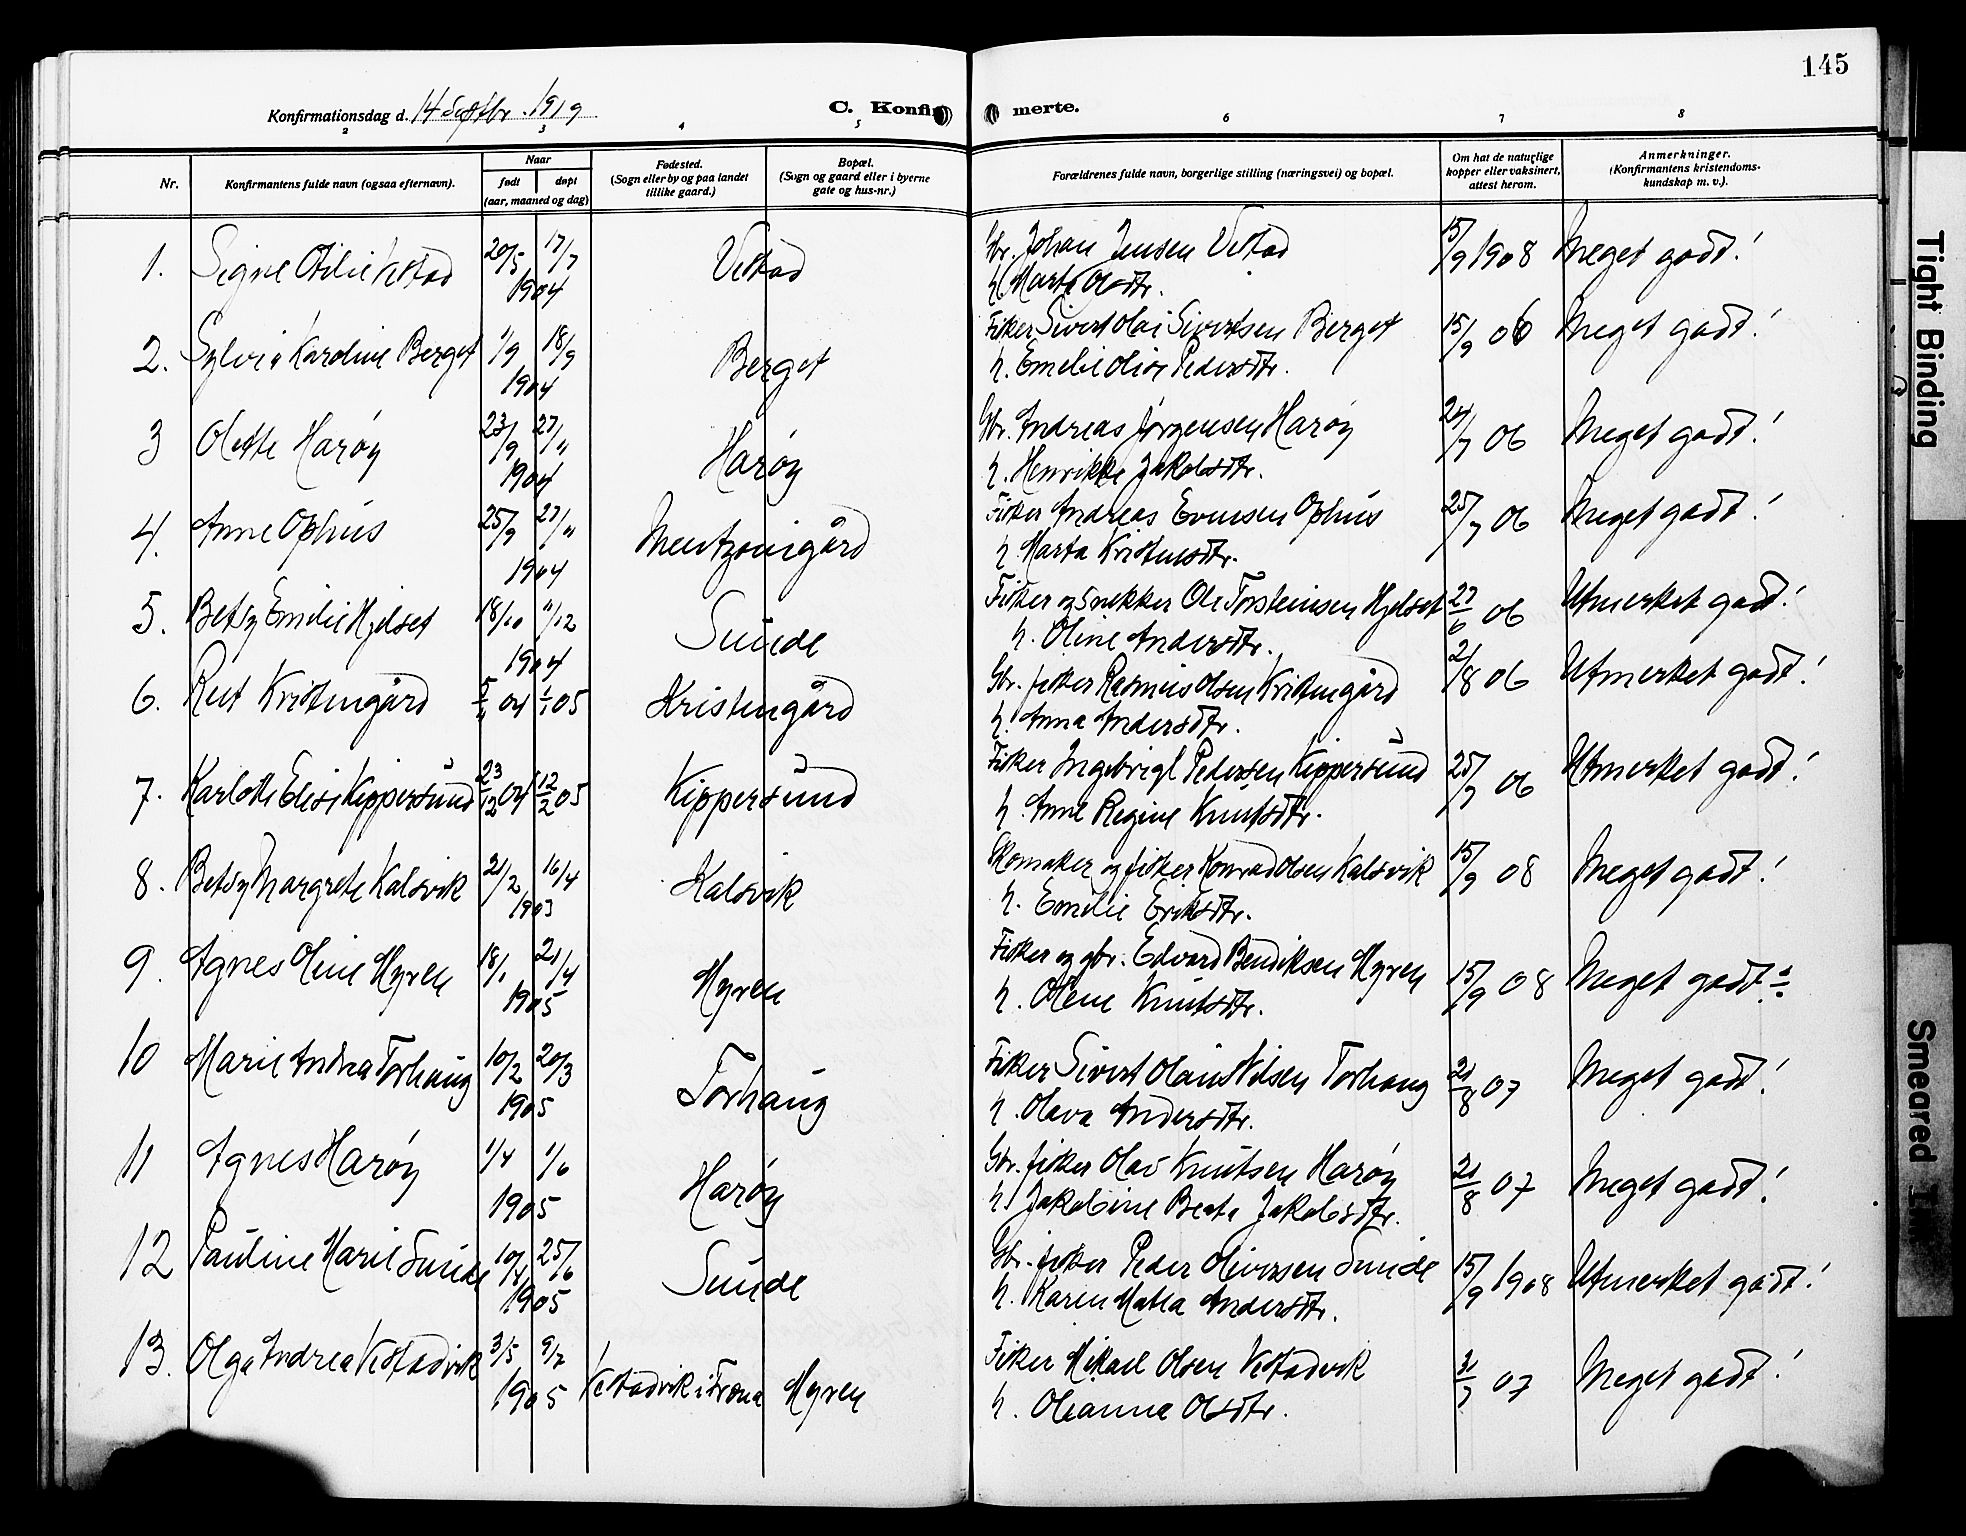 145
Konfirmationsdag d. 14 Septbr. 1919
C. Konfir merte.
2 3 4 5 6 7 8
Nr.
Konfirmantens fulde navn (ogsaa efternavn).
Naar
født døpt
(aar, maaned og dag)
Fødested.
(Sogn eller by og paa landet
tillike gaard.)
Bopæl.
(Sogn og gaard eller i byerne
gate og hus-nr.)
Forældrenes fulde navn, borgerlige stilling (næringsvei) og bopæl.
Om hat de naturlige
kopper eller vaksinert,
attest herom.
Anmerkninger.
(Konfirmantens kristendoms-
kundskap m. v.).
1. Signe Otilie Vestad 20/5 17/7 Vestad Gbr. Johan Jensen Vestad 15/9 1908 Meget godt!
1904 h. Marta Olsdtr.
2. Sylvia Karoline Berget 1/9 18/9 Berget Fisker Sivert Olai Sivertsen Berget 15/9 06 Meget godt!
1904 h. Emelie Olise Pedersdtr.
3 Olette Harøy 23/9 27/11 Harøy Gbr. Andreas Jørgensen Harøy 24/7 06 Meget godt!
1904 h. Henrikke Jakobsdtr.
4. Anne Ophus 25/9 27/11 Mentzonigård Fisker Andreas Evensen Ophus 25/7 06 Meget godt!
1904 h. Marta Kristensdtr.
5. Betsy Emilie Hjelset 18/10 11/12 Sunde Fisker og snekker Ole Torsteinsen Hjelset 27/6 06 Utmerket godt!
1904 h. Oline Andersdtr.
6. Rut Kristengård 5/11 04 1/1 05 Kristengård Gbr. fisker Rasmus Olsen Kristengård 21/8 06 Utmerket godt!
h. Anna Andersdtr.
7. Karlotte Elise Kippersund 23/12 04 12/2 05 Kippersund Fisker Ingebrigt Pedersen Kippersund 25/7 06 Utmerket godt!
h. Anne Regine Knutsdtr.
8. Betsy Margrete Kalsvik 21/2 16/4 Kalsvik Skomaker og fisker Konrad Olsen Kalsvik 15/9 08 Meget godt!
1903 h. Emelie Eriksdtr.
9. Agnes Oline Myren 18/1 21/4 Myren Fisker og gbr. Edvard Bendiksen Myren 15/9 08 Meget godt
1905 h. Olene Knutsdtr.
10 Marie Andrea Torhaug 10/2 20/3 Torhaug Fisker Sivert Olaus Nilsen Torhaug 21/8 07 Meget godt!
1905 h. Olava Andersdtr.
11 Agnes Harøy 1/4 1/6 Harøy Gbr. fisker Olav Knutsen Harøy 21/8 07 Meget godt!
1905 h. Jakobine Beata Jakobsdtr.
12 Pauline Marie Sunde 10/4 25/6 Sunde Gbr. fisker Peder Oliversen Sunde 15/9 1908 Utmerket godt!
1905 h. Karen Matea Andersdtr.
13. Olga Andrea Vestadvik 3/5 9/7 Vestadvik i Fræna Myren Fisker Mikael Olsen Vestadvik 31/7 07 Meget godt!
1905 h. Oleanna Olsdtr.
Tight Binding
Smeared